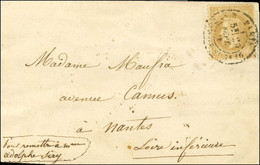 Madame Maufra
avenue Camus
à Nantes
Loire inférieure
Pour remettre à Mme
adolphe